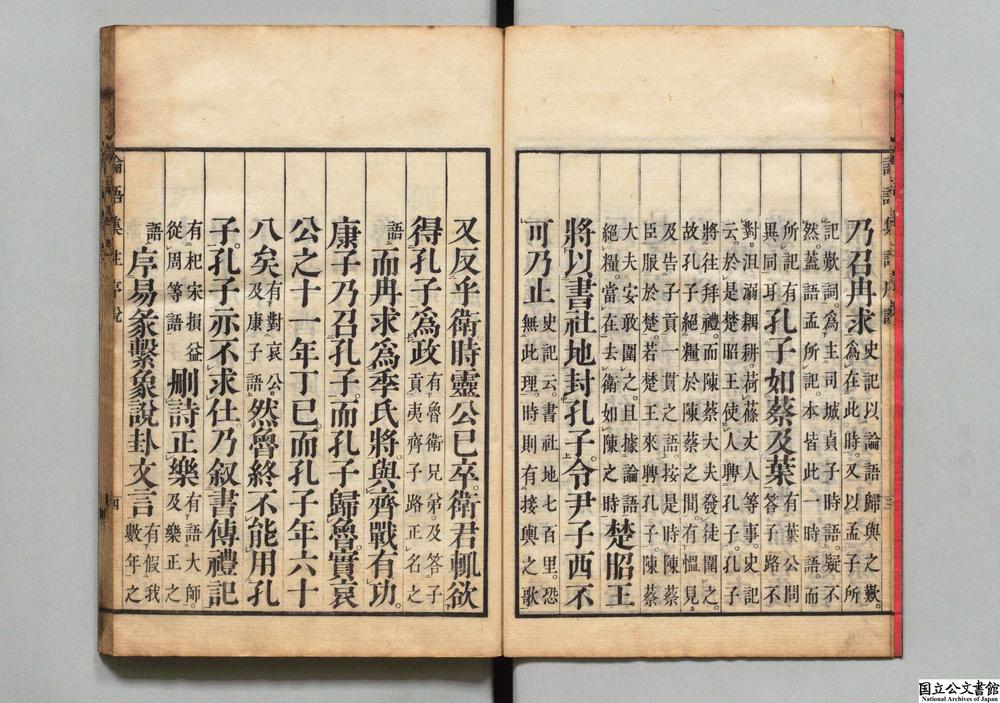 論語集註序說 三
乃召冉求史記以論語歸與之歎爲在此時又以孟子所
記歎詞爲主司城貞子時語疑不然蓋語孟所記本皆此一時語而
所記有異同耳孔子如蔡及葉有葉公問荅子路不
對沮溺耦耕荷蓧丈人等事史記云於是楚昭王使人聘孔子孔子
將往拜禮而陳蔡大夫發徒圍之故孔子絕糧於陳蔡之間有慍見
及告子貢一貫之語按是時陳蔡臣服於楚若楚王來聘孔子陳蔡
大夫安敢圍之且據論語絕糧當在去衛如陳之時楚昭王
將以書社地封孔子令尹子西不
可乃止史記云書社地七百里恐無此理時則有接輿之歌
又反乎衛時靈公已卒衛君輒欲
得孔子爲政有魯衛兄弟及荅子貢夷齊子路正名之
語而冉求爲季氏將與齊戰有功
康子乃召孔子而孔子歸魯實哀
公之十一年丁巳而孔子年六十
八矣有對哀公及康子語然魯終不能用孔
子孔子亦不求仕乃叙書傳禮記
有杞宋損益從周等語刪詩正樂有語大師及樂正之
語序易彖繫象說卦文言有假我數年之
論語集註序說 四
国立公文書館
National Archives of Japan